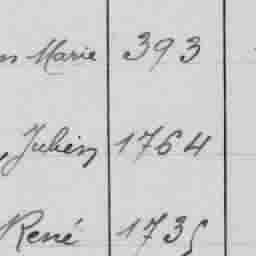 Marie 393
Julien 1764
René 1735